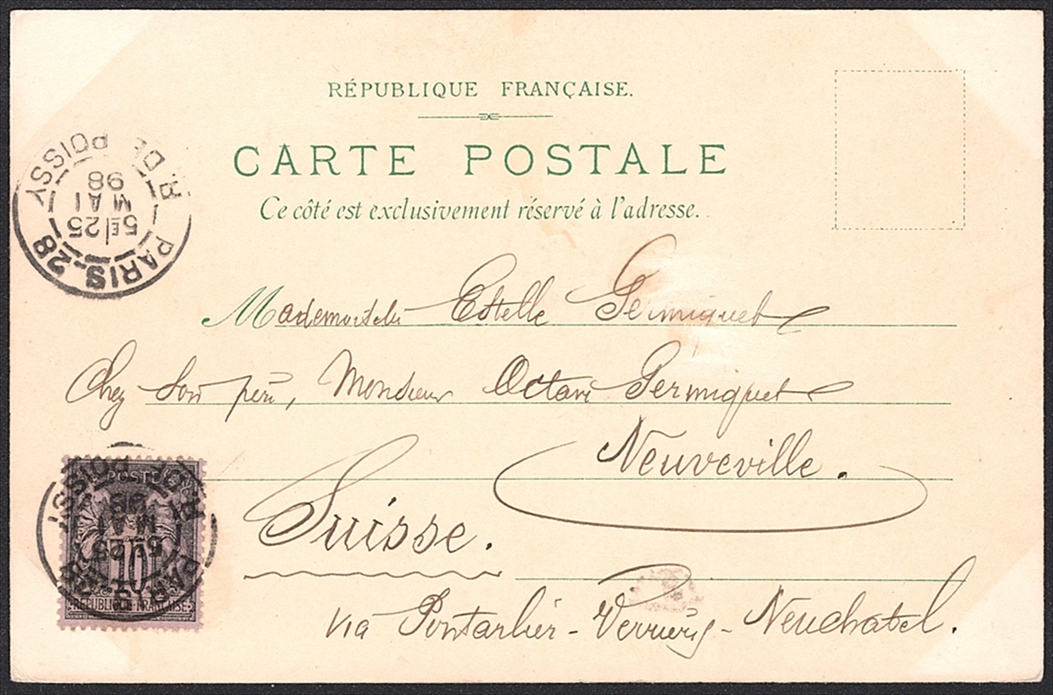 RÉPUBLIQUE FRANÇAISE.
CARTE POSTALE
Ce côté est exclusivement réservé à l'adresse.
PARIS-28
R. DE POISSY
5E/25
MAI
98
Mademoiselle Estelle Germiquet
Chez son père, Monsieur Octave Germiquet
Neuveville.
Suisse.
via Pontarlier-Verrières-Neuchatel.
POSTES
10
REPUBLIQUE FRANÇAISE
PARIS-28
R. DE POISSY
5E/25
MAI
98